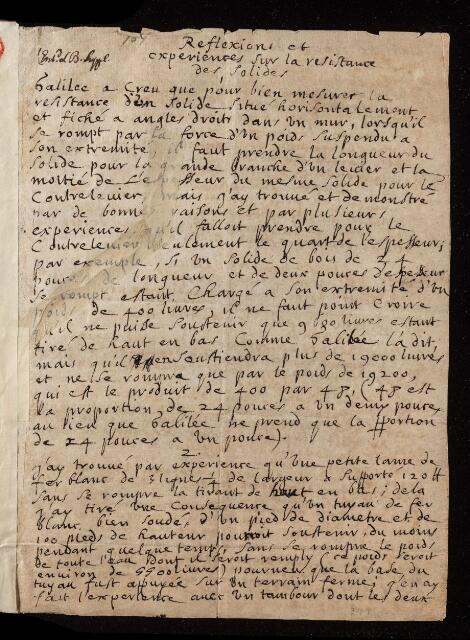 Reflexions et
experiences sur la resistance
des solides
Galilée a Creu que pour bien mesurer la
resistance d'vn Solide situé horisontalement
et fiché a angles droits dans vn mur, lorsqu'il
se rompt par la force d'vn poids suspendu a
son extremité il faut prendre la longueur du
solide pour la grande branche d'vn leuier et la
moitié de L'espesseur du mesme solide pour le
Contreleuier, mais j'ay trouué et demonstré
par de bonnes raisons et par plusieurs
experiences qu'il falloit prendre pour le
Contreleuier seulement le quart de l'espesseur;
par exemple, si vn solide de bois de 24
pouces de longueur et de deux pouces d'espesseur
se rompt estant Chargé a son extremité d'vn
poids de 400 livres, il ne faut point Croire
qu'il ne puisse soustenir que 9600 livres estant
tiré de haut en bas Comme Galilée la dit,
mais qu'il en soustiendra plus de 19000 livres
et ne se rompra que par le poids de 19200,
qui est le produit de 400 par 48, (48 est
la proportion de 24 pouces a vn demy pouce,
au lieu que Galilée ne prend que la pportion
de 24 pouces a vn pouce).
2.
j'ay trouué par experience qu'vne petite lame de
fer blanc de 3 lignes de largeur a supporté 120 ℔
sans se rompre la tirant de haut en bas; de la
j'ay tiré vne Consequence qu'vn tuyau de fer
blanc bien soudé, d'vn pied de diametre et de
100 pieds de hauteur pouroit soustenir, du moins
pendant quelque temps, sans se rompre le poids
de toute l'eau dont il seroit remply (ce poids seroit
environ 5500 livres) pourueu que la base du
tuyau fust appuyée sur vn terrain ferme; j'en ay
fait l'experience auec vn tambour dont le deux